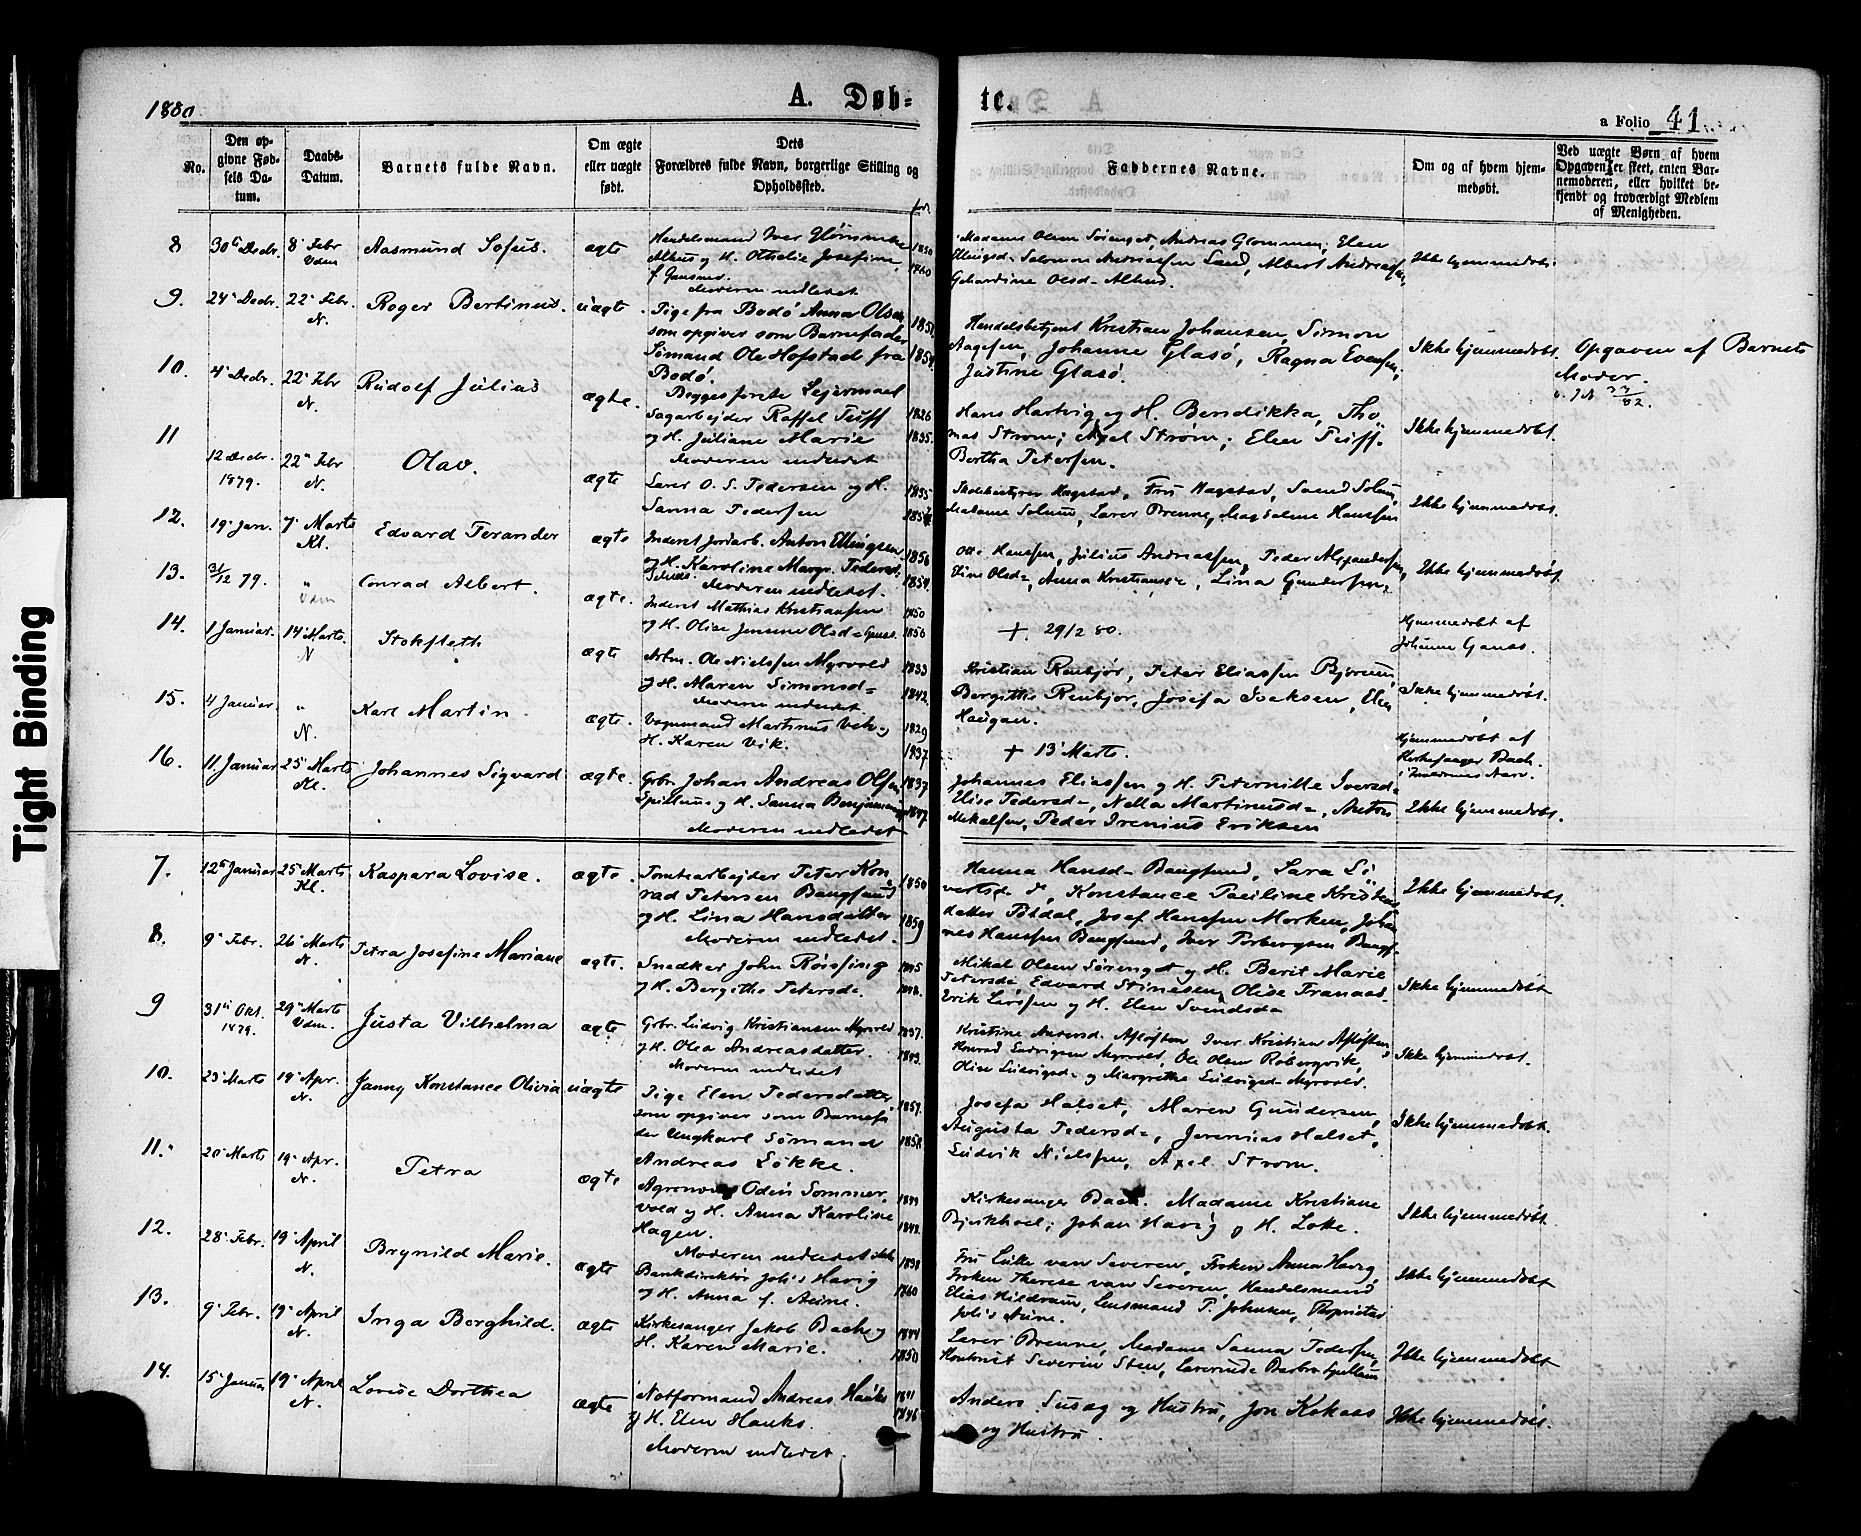 1880.
A. Døb=
te.
a Folio 41
No.
Den op-
givne Fød-
sels Da-
tum.
Daabs-
Datum.
Barnets fulde Navn.
Om ægte
eller uægte
født.
Dets
Forældres fulde Navn, borgerlige Stilling og
Opholdssted.
Faddernes Navne.
Om og af hvem hjem-
medøbt.
Ved uægte Børn af hvem
Opgaven er skeet, enten Bar-
nemoderen, eller hvilket be-
kjendt og troværdigt Medlem
af Menigheden.
8 30te Decbr. 8' Febr Aasmund Sofus. ægte
Handelsmand Iver 1850
og H. Othelie Josefine 1860
Moderen indledet
Madame Olsen Sørenget, Andreas Glømmen, Elen
Ellingsd= Salomon Andreassen Lund, Albert Andreassen,
Gehardine Olsd=
Ikke hjemmedøbt.
9. 24' Decbr. 22' Febr. N. Roger Bertinus. uægte.
Pige fra Bodø Anna Olsen
som opgiver som Barnefader
Sømand Ole Hofstad fra
Bodø.
Begges første Lejermaal
Handelsbetjent Kristian Johansen, Simon
Aagesen, Johanne Glasø, Ragna Evensen,
Justine Glasø.
Ikke hjemmedøbt.
Opgaven af Barnets
Moder.
10. 4' Decbr. 22' Febr N. Rudolf Julius ægte.
Sagarbejder Raffel Tuff 1826
og H. Juliane Marie 1835.
Moderen indledet
Hans Hartvig og H. Bendikka, Tho-
mas Strøm; Axel Strøm; Elen Tuff
Bertha Petersen.
Ikke hjemmedøbt.
11 12 Decbr. 1879. 22' Febr N. Olav. ægte
Lærer O. S. Pedersen og H. 1855
Sanna Pedersen
Skolebestyrer Hagstad, Fru Hagstad, Svend Solum,
Madame Solum, Lærer Brenne, Magdalene Hanssen
Ikke hjemmedøbt.
12. 19' Jan. 7' Marts Kl. Edvard Ferander ægte
Inderst Jordarb. Anton Ellingsen 1856
og H. Karoline Margr. Pedersd.
Moderen indledet.
Otte Hanssen, Julius Andreassen, Peder Alexandersen,
Stine Olsd=, Anna Kristiansd=, Lina Gundersen,
Ikke hjemmedøbt.
13. 31/12 79. " Conrad Albert. ægte.
Inderst Mathias Kristiansen 1850
og H. Olise Jensine Olsd= 1856
+. 29/2 80.
Hjemmedøbt af
Johanne Ganss.
14. 1 Januar. 14' Marts. N Stokfleth ægte
Arbm. Ole Nielssen Myrvold 1833
og H. Maren Simonsd= 1842.
Moderen indledet.
Kristian Renbjør, Peter Eliassen Bjørum,
Bergitte Renbjør, Josefa Isaksen, Elen
Haugan.
Ikke hjemmedøbt.
15. 4 Januar. " N. Karl Martin. ægte.
Vognmand Martinus Vik og 1829
H. Karen Vik. 1837
+ 13' Marts
Hjemmedøbt af
Kirkesanger Bach.
16. 11 Januar 25' Marts Kl. Johannes Sigvard ægte.
Grbr. Johan Andreas Olsen 1837
Spillum og H. Sanna Benjaminsd. 1847.
Moderen indledet
Johannes Eliassen og H. Peternille Iversd=
Elise Pedersd=, Nella Martinusd=, Anton
Mikalsen, Peder Irenius Eriksen
Ikke hjemmedøbt.
7. 12te Januar 25' Marts Kl. Kaspara Lovise. ægte.
Tomtearbejder Peter Kon- 1850
rad Petersen Bangsund
og H. Lina Hansdatter 1859
Moderen indledet.
Hanna Hansd= Bangsund, Sara Si-
vertsd= do, Konstance Pauline Kristens-
datter Bildal, Josef Hanssen Morken, Johan-
nes Hanssen Bangsund, Iver Torbergsen Bangs.
Ikke hjemmedøbt.
8. 9' Febr. 26' Marts N. Petra Josefine Mariane ægte.
Snedker John Røissing 1845
og H. Bergitte Petersd=.
Mikal Olsen Sørenget og H. Berit Marie
Petersd=, Edvard Stinesen, Olise Franaas
Erik Larssen og H. Elen Svendsd=
Ikke hjemmedøbt
9 31te Okt. 1879. 29' Marts Vdm. Justa Vilhelma ægte
Grbr. Ludvig Kristiansen Myrvold 1837.
og H. Olea Andreasdatter. 1843.
Moderen indledet
Kristine Andersd. Afløften Iver Kristian Afløften,
Konrad Ludvigsen Myrvold, Ole Olsen Rødbergvik,
Olise Ludvigsd= og Margrethe Ludvigsd= Myrvold.
Ikke hjemmedøbt.
10. 23' Marts 19' Apr. N. Janny Konstance Olivia uægte
Pige Elen Pedersdatter, 1857.
som opgiver som Barnefa-
der Ungkarl Sømand 1858.
Andreas Løkke.
Josefa Halset, Maren Gundersen,
Augusta Pedersd=, Jeremias Halset,
Ludvik Nielssen, Axel Strøm.
Ikke hjemmedøbt.
11. 20' Marts 19' Apr. N. Petra ægte
Agronom Odin Sommer- 1844
vold og H. Anna Karoline 1848.
Hagen.
Moderen indledet ikke
Kirkesanger Bach. Madame Kristiane
Bjerkhoel; Johan Havig og H. Lotte.
Ikke hjemmedøbt.
12. 28' Febr. 19' April N. Brynild Marie. ægte
Bankdirektør Johs Havig 1838
og H. Anna f. Aune. 1860
Fru Lukke van Severen, Frøken Anna Havig,
Frøken Therese van Severen, Handelsmand
Elias Hildrum, Lensmand P. Johnsen, Proprietær
Johs Aune.
Ikke hjemmedøbt
13. 9' Febr. 19' April N. Inga Borghild. ægte
Kirkesanger Jakob Bach og 1844
H. Karen Marie. 1850
Lærer Brenne, Madame Sanna Pedersen,
Kontorist Severin Sten, Lærerinde Barbro Spillum
Ikke hjemmedøbt
14. 15' Januar 19' April N. Lovise Dorthea ægte
Notformand Andreas Hauks 1841
og H. Elen Hauks. 1846
Moderen indledet.
Anders Susag og Hustru, Jon Kokaas
og Hustru.
Ikke hjemmedøbt.
Tight Binding